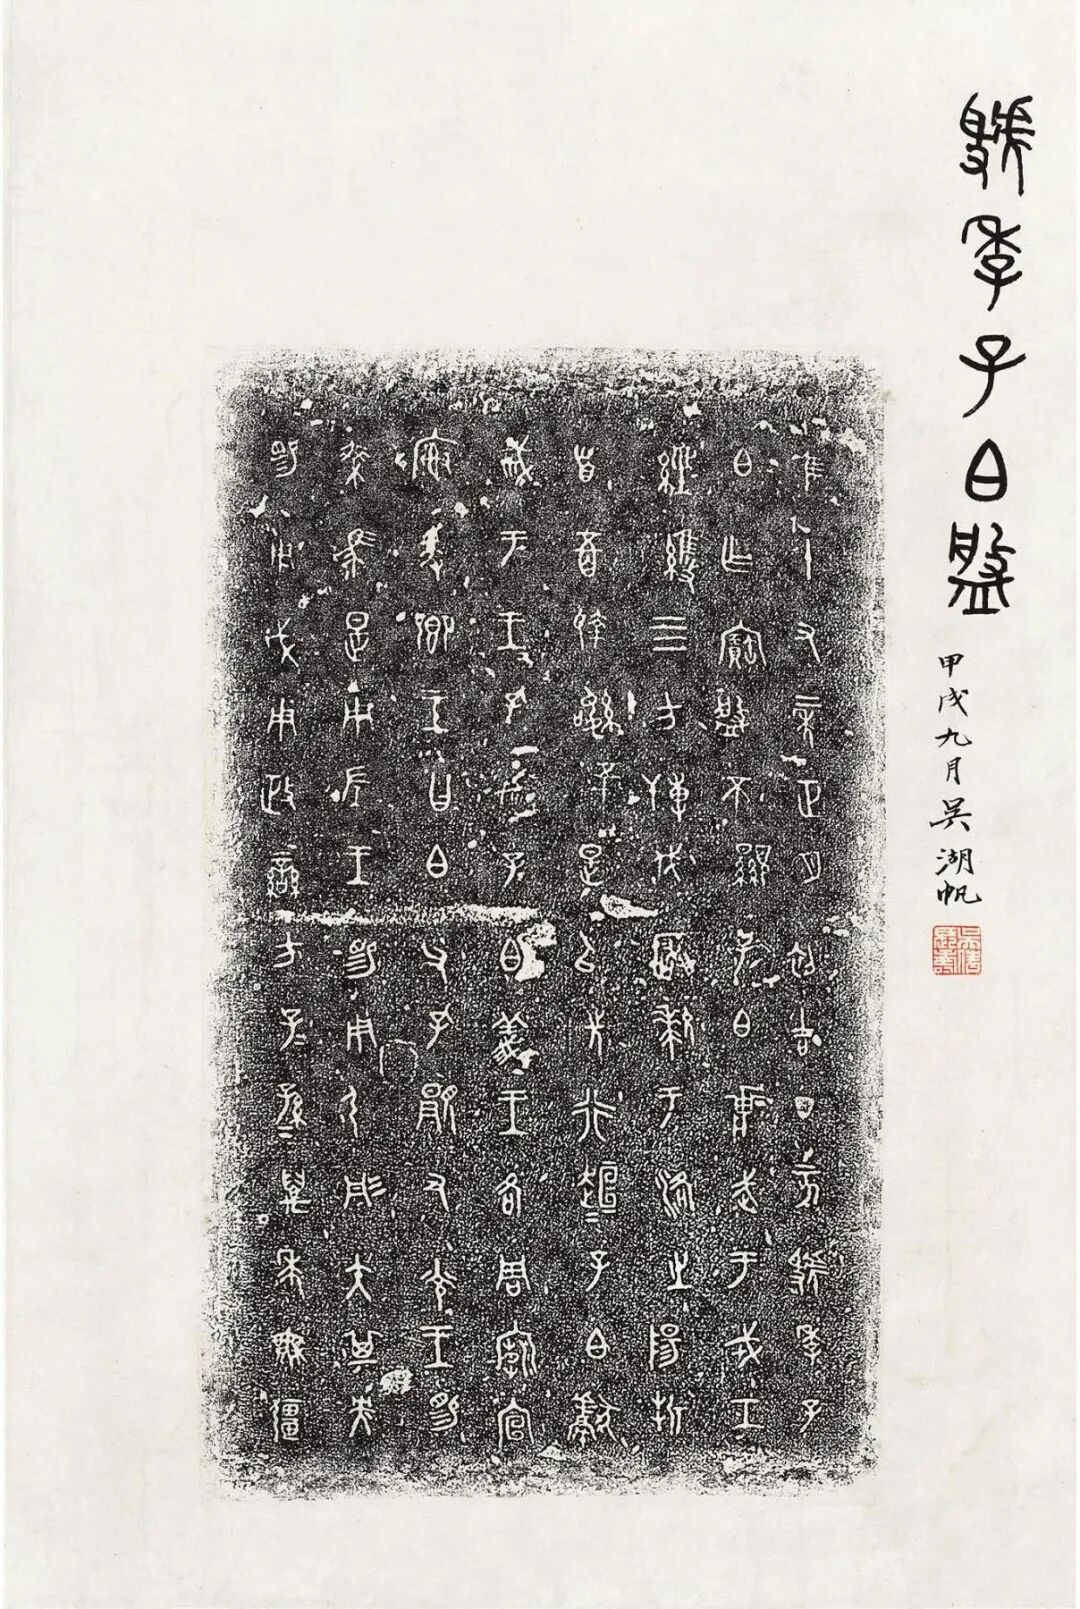 虢季子白盤
甲戌九月吳湖帆
隹十又二年正月初吉丁亥虢季子
白乍寶盤不顯子白壯武于戎工
經維四方搏伐玁狁于洛之陽折
首五百執訊五十是以先行桓桓子白獻
馘于王王孔加子白義王各周廟宣
榭爰鄉王曰白父孔顯又光王睗
乘馬是用左王睗用弓彤矢其央
睗用戉用政蠻方子子孫孫萬年無疆